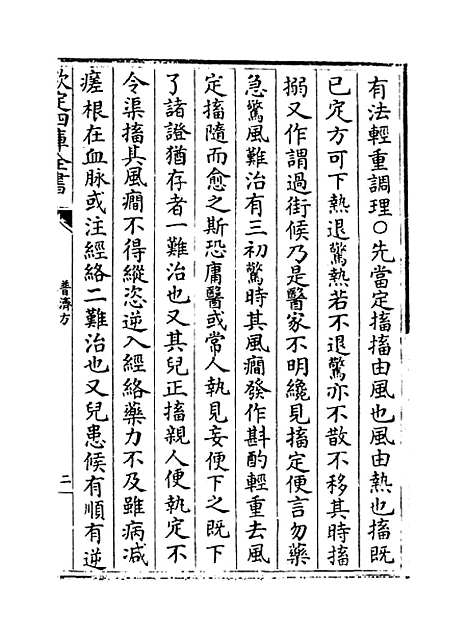 有法輕重調理○先當定搐搐由風也風由熱也搐既
已定方可下熱退驚熱若不退驚亦不散不移其時搐
搦又作謂過街候乃是醫家不明纔見搐定便言勿藥
急驚風難治有三初驚時其風癎發作斟酌輕重去風
定搐隨而愈之斯恐庸醫或常人執見妄便下之既下
了諸證猶存者一難治也又其兒正搐親人便執定不
令渠搐其風癎不得縱恣逆入經絡藥力不及雖病減
瘥根在血脉或注經絡二難治也又兒患候有順有逆
欽定四庫全書
普濟方
二